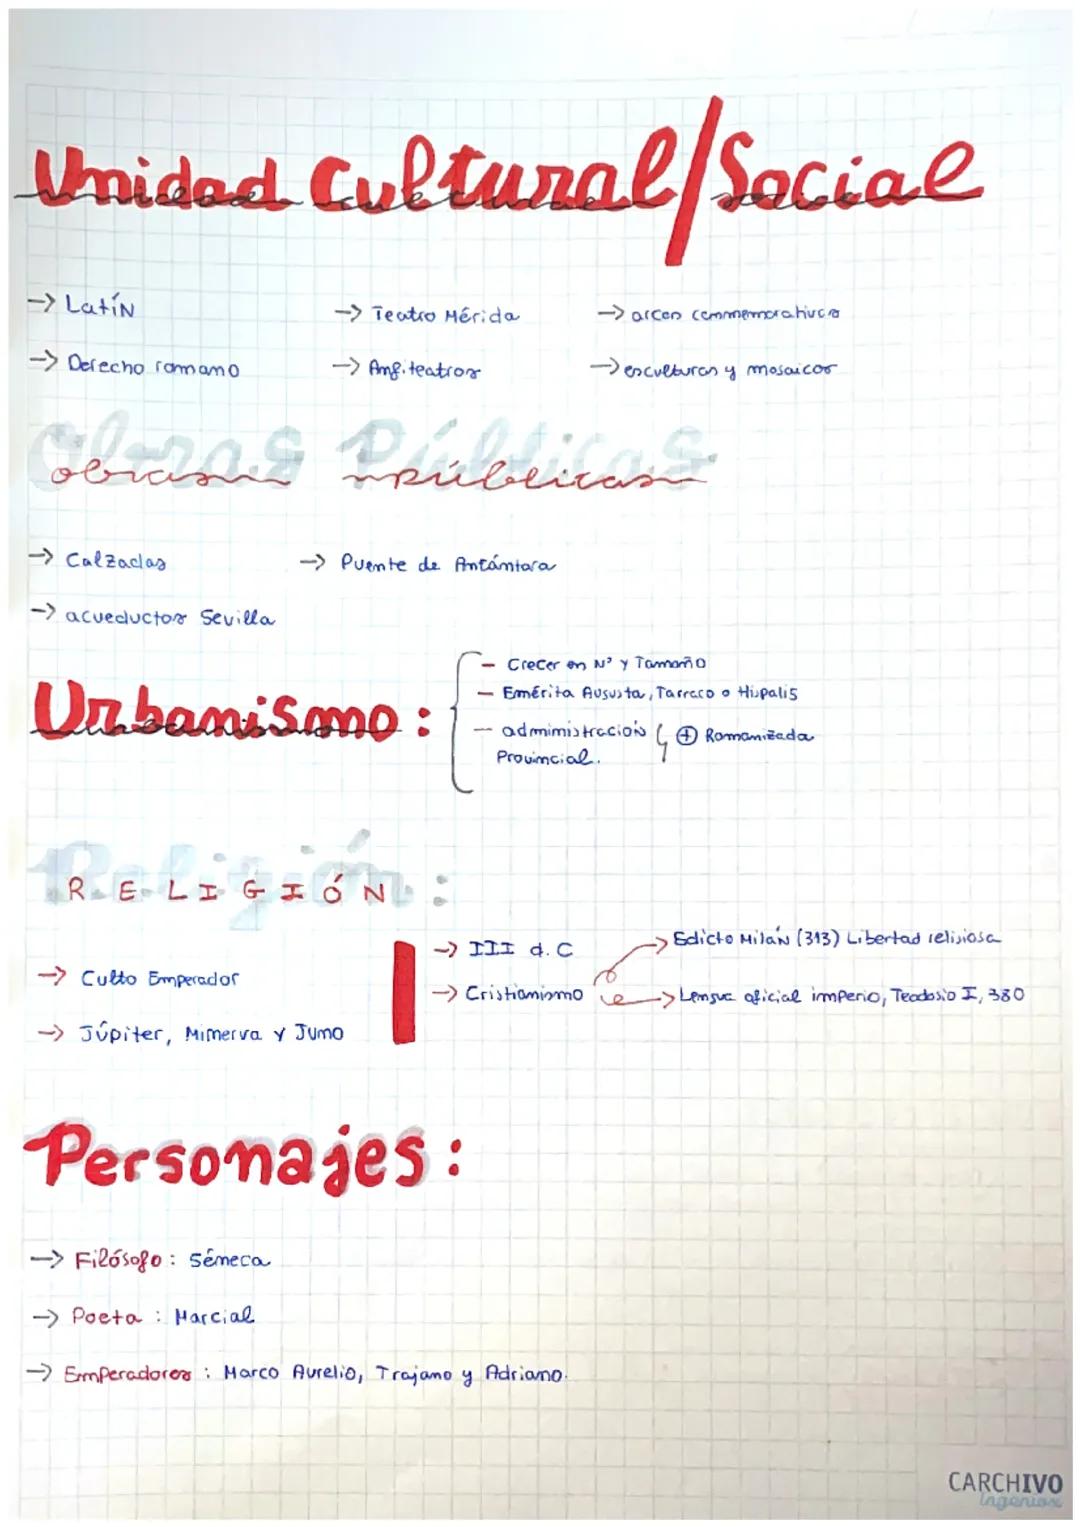 Unidad Cultural/Social
→ Latín
→ Teatro Mérida
→ arcos conmemorativos
→ Derecho romano
→ Anfiteatros
→ esculturas y mosaicos
Obras Públicas
obras públicas
→ Calzadas
→ Puente de Antántara
→ acueductos Sevilla
Urbanismo:
- Crecer en Nº y Tamaño
- Emérita Augusta, Tarraco o Hispalis
- administración ⊕ Romanizada
Provincial.
Religión:
RELIGIÓN
→ Culto Emperador
→ Júpiter, Minerva y Juno
→ III d.C
→ Cristianismo
→ Edicto Milán (313) Libertad religiosa
→ Lengua oficial imperio, Teodosio I, 380
Personajes:
→ Filósofo: Séneca
→ Poeta: Marcial
→ Emperadores: Marco Aurelio, Trajano y Adriano.
CARCHIVO
Ingeniox